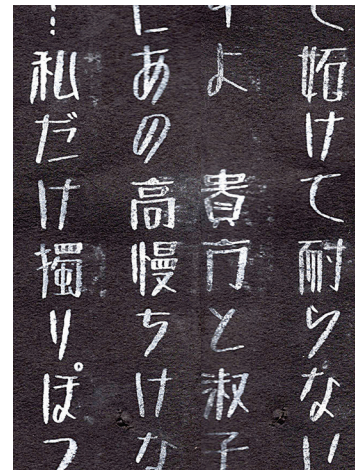 妬けて耐らない
すよ　貴方と淑子
あの高慢ちけな
…私だけ獨りぽつ